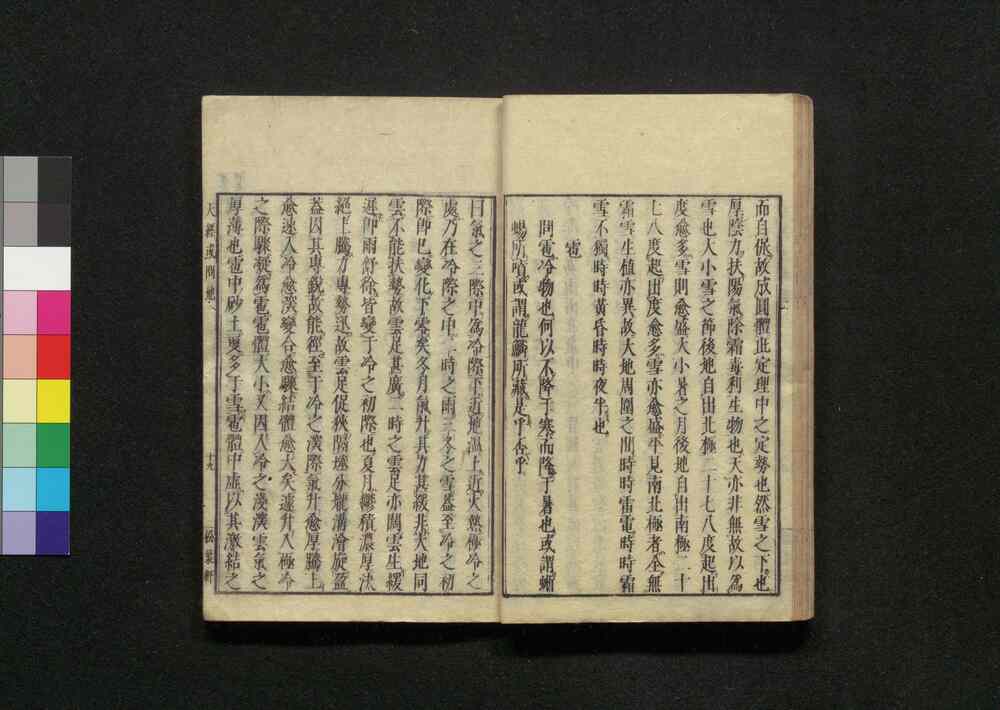 而自促故成圓體此定理中之定勢也然雪之下也
厚陰力扶陽氣除霜毒利生物也天亦非無故以爲
雪也大小雪之節後地自出北極二十七八度起出
度愈多雪則愈盛大小暑之月後地自出南極二十
七八度起出度愈多雪亦愈盛平見南北極者全無
霜雪生值亦異故大地周圍之間時時雷電時時霜
雪不獨時時黃昏時時夜半也
雹
問雹冷物也何以不降于寒而降于暑也或謂蜥
蜴所噴或謂龍鱗所藏是乎否乎
曰氣之三際中爲冷際下近地溫上近火熱極冷之
處乃在冷際之中二時之雨三冬之雪蓋至冷之初
際卽已變化下零矣冬月氣升其力甚緩非大地同
雲不能扶勢故雲足甚廣二時之雲足亦闊雲生緩
遲卽雨舒徐皆變于冷之初際也夏月鬱積濃厚決
絕上騰力專勢迅故雲足促狹隔塍分壠溝澮旋盈
蓋因其專銳故能徑至于冷之深際氣升愈厚騰上
愈速入冷愈深變合愈驟結體愈大矣速升入極冷
之際驟凝爲雹雹體大小又因入冷之淺深雲氣之
厚薄也雹中砂土更多于雪雹體中虛以其激結之
天經或問地 十九 松葉軒